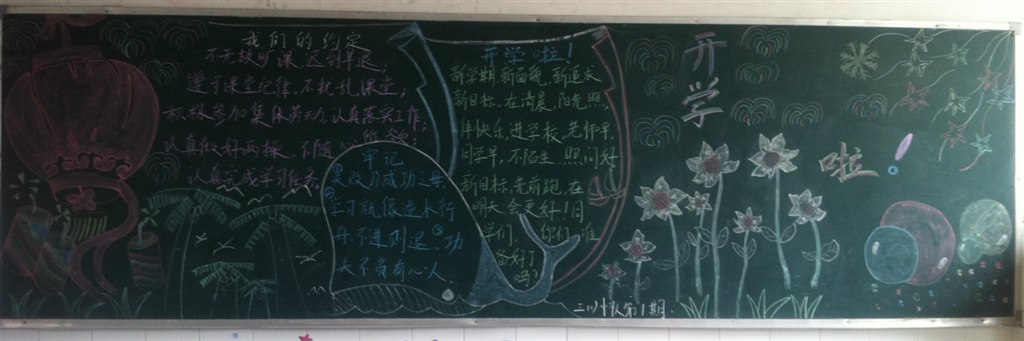 我们的约定
不无故旷课、迟到早退；
遵守课堂纪律，不扰乱课堂；
积极参加集体劳动，认真落实工作；
认真做好两操，不随心所欲；
认真完成学习任务
牢记
①失败乃成功之母
②学习就像逆水行
舟不进则退③功
夫不负有心人
开学啦！
新学期，新面貌，新追求
新目标，在清晨，阳光照，
伴快乐，进学校，老师早，
同学早，不陌生，照问好
新目标，先前跑，在
明天会更好！同
学们，你们准
备好了
吗？
开学
啦！
三(2)中队第1期